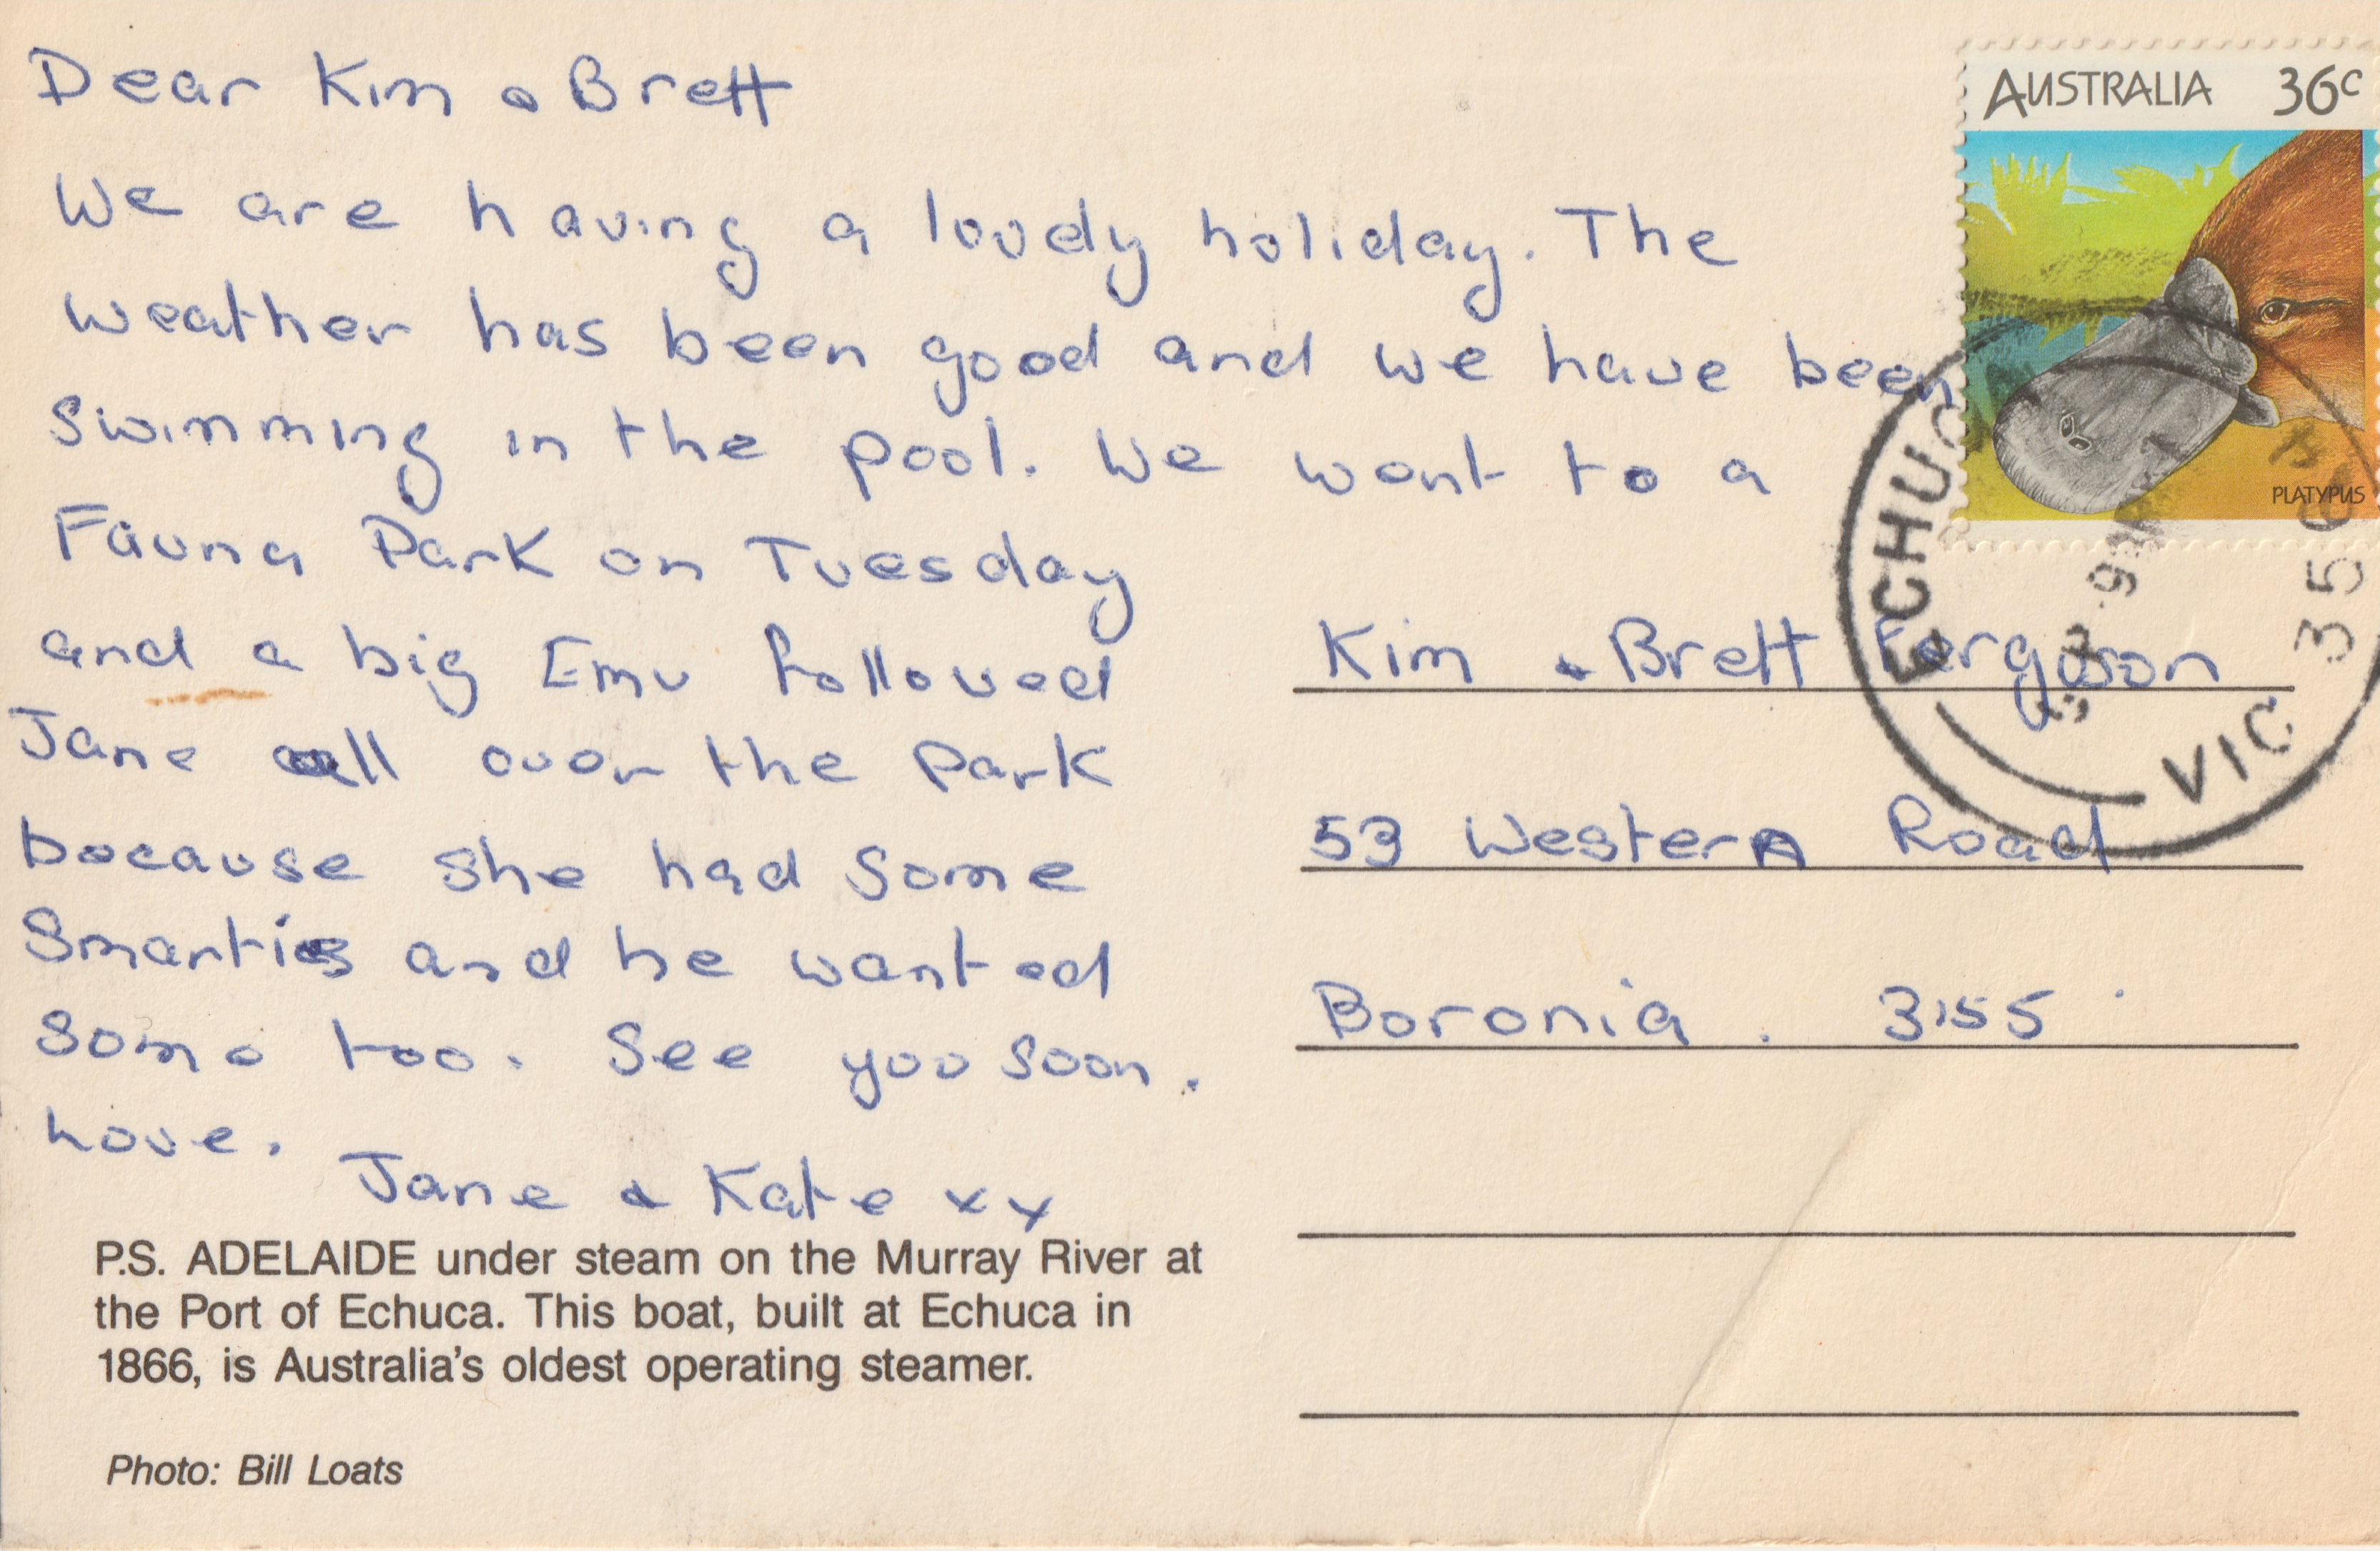 Dear Kim & Brett
We are having a lovely holiday. The
weather has been good and we have been
swimming in the pool. We went to a
Fauna Park on Tuesday
and a big Emu followed
Jane all over the park
because she had some
Smarties and he wanted
some too. See you soon.
Love.
Jane & Kate xx
P.S. ADELAIDE under steam on the Murray River at
the Port of Echuca. This boat, built at Echuca in
1866, is Australia's oldest operating steamer.
Photo: Bill Loats
AUSTRALIA 36c
PLATYPUS
ECHUCA
VIC 35
Kim & Brett Ferguson
53 Western Road
Boronia. 3155